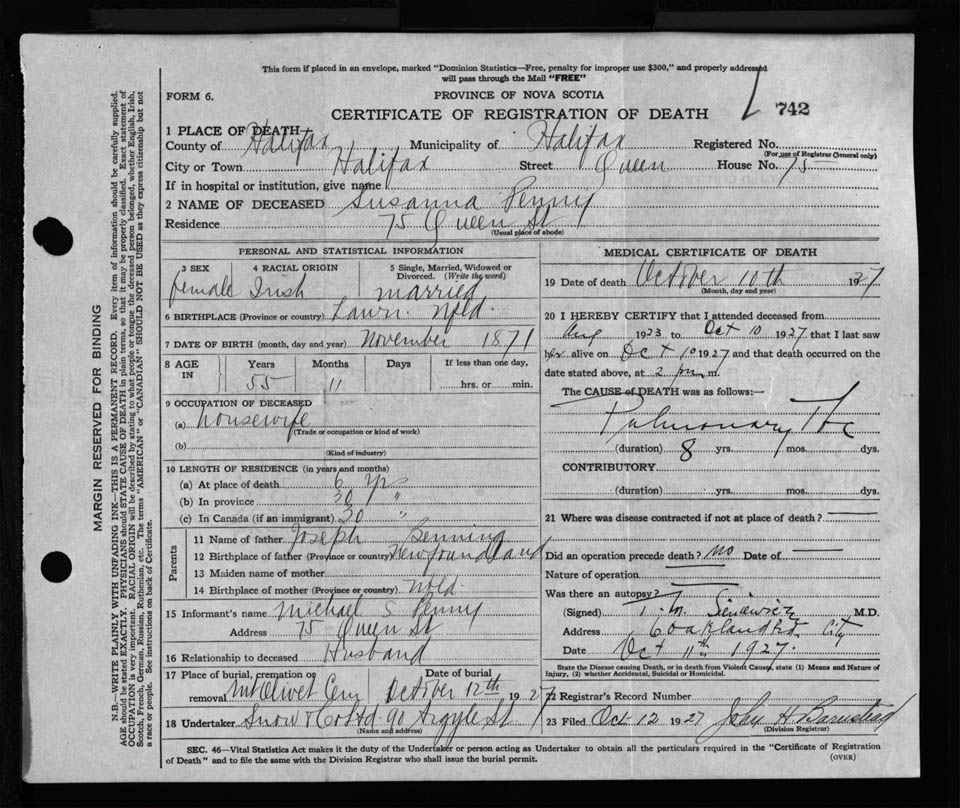 This form if placed in an envelope, marked "Dominion Statistics—Free, penalty for improper use $300," and properly addressed
will pass through the Mail "FREE"
FORM 6.
PROVINCE OF NOVA SCOTIA
CERTIFICATE OF REGISTRATION OF DEATH
742
1 PLACE OF DEATH
County of Halifax Municipality of Halifax Registered No.
(For use of Registrar General only)
City or Town Halifax Street Queen House No. 75
If in hospital or institution, give name
2 NAME OF DECEASED Susanna Penny
Residence 75 Queen St
(Usual place of abode)
PERSONAL AND STATISTICAL INFORMATION
3 SEX 4 RACIAL ORIGIN 5 Single, Married, Widowed or Divorced. (Write the word)
female Irish married
6 BIRTHPLACE (Province or country) Lawn. Nfld.
7 DATE OF BIRTH (month, day and year) November 1871
8 AGE IN Years Months Days If less than one day,
55 11 hrs. or min.
9 OCCUPATION OF DECEASED
(a) housewife
(Trade or occupation or kind of work)
(b)
(Kind of industry)
10 LENGTH OF RESIDENCE (in years and months)
(a) At place of death 6 yrs
(b) In province 30 "
(c) In Canada (if an immigrant) 30 "
Parents
11 Name of father Joseph Benning
12 Birthplace of father (Province or country) Newfoundland
13 Maiden name of mother
14 Birthplace of mother (Province or country) Nfld.
15 Informant's name Michael S Penny
Address 75 Queen St
16 Relationship to deceased Husband
17 Place of burial, cremation or removal Mt Olivet Cem Date of burial October 12th 1927
18 Undertaker Snow & Co Ltd 90 Argyle St
(Name and address)
MEDICAL CERTIFICATE OF DEATH
19 Date of death October 10th 1927
(Month, day and year)
20 I HEREBY CERTIFY that I attended deceased from
Aug 1923 to Oct 10 1927 that I last saw
her alive on Oct 10 1927 and that death occurred on the
date stated above, at 2 pm m.
The CAUSE of DEATH was as follows:—
Pulmonary Tbc
(duration) 8 yrs. mos. dys.
CONTRIBUTORY
(duration) yrs. mos. dys.
21 Where was disease contracted if not at place of death?
Did an operation precede death? no Date of
Nature of operation
Was there an autopsy?
(Signed) M.D.
Address City
Date Oct 11th 1927.
State the Disease causing Death, or in death from Violent Causes, state (1) Means and Nature of
Injury, (2) whether Accidental, Suicidal or Homicidal.
22 Registrar's Record Number
23 Filed Oct 12 1927 John H Barnstead
(Division Registrar)
SEC. 46—Vital Statistics Act makes it the duty of the Undertaker or person acting as Undertaker to obtain all the particulars required in the "Certificate of Registration
of Death" and to file the same with the Division Registrar who shall issue the burial permit.
(OVER)
MARGIN RESERVED FOR BINDING
N.B.—WRITE PLAINLY WITH UNFADING INK—THIS IS A PERMANENT RECORD. Every item of information should be carefully supplied.
AGE should be stated EXACTLY. PHYSICIANS should STATE CAUSE OF DEATH in plain terms, so that it may be properly classified. Exact statement of
OCCUPATION is very important. RACIAL ORIGIN will be described by stating to what people or tongue the deceased person belonged, whether English, Irish,
Scotch, French, German, Russian, Ruthenian, etc. The terms "AMERICAN" or "CANADIAN" SHOULD NOT BE USED as they express citizenship but not
a race or people. See instructions on back of Certificate.